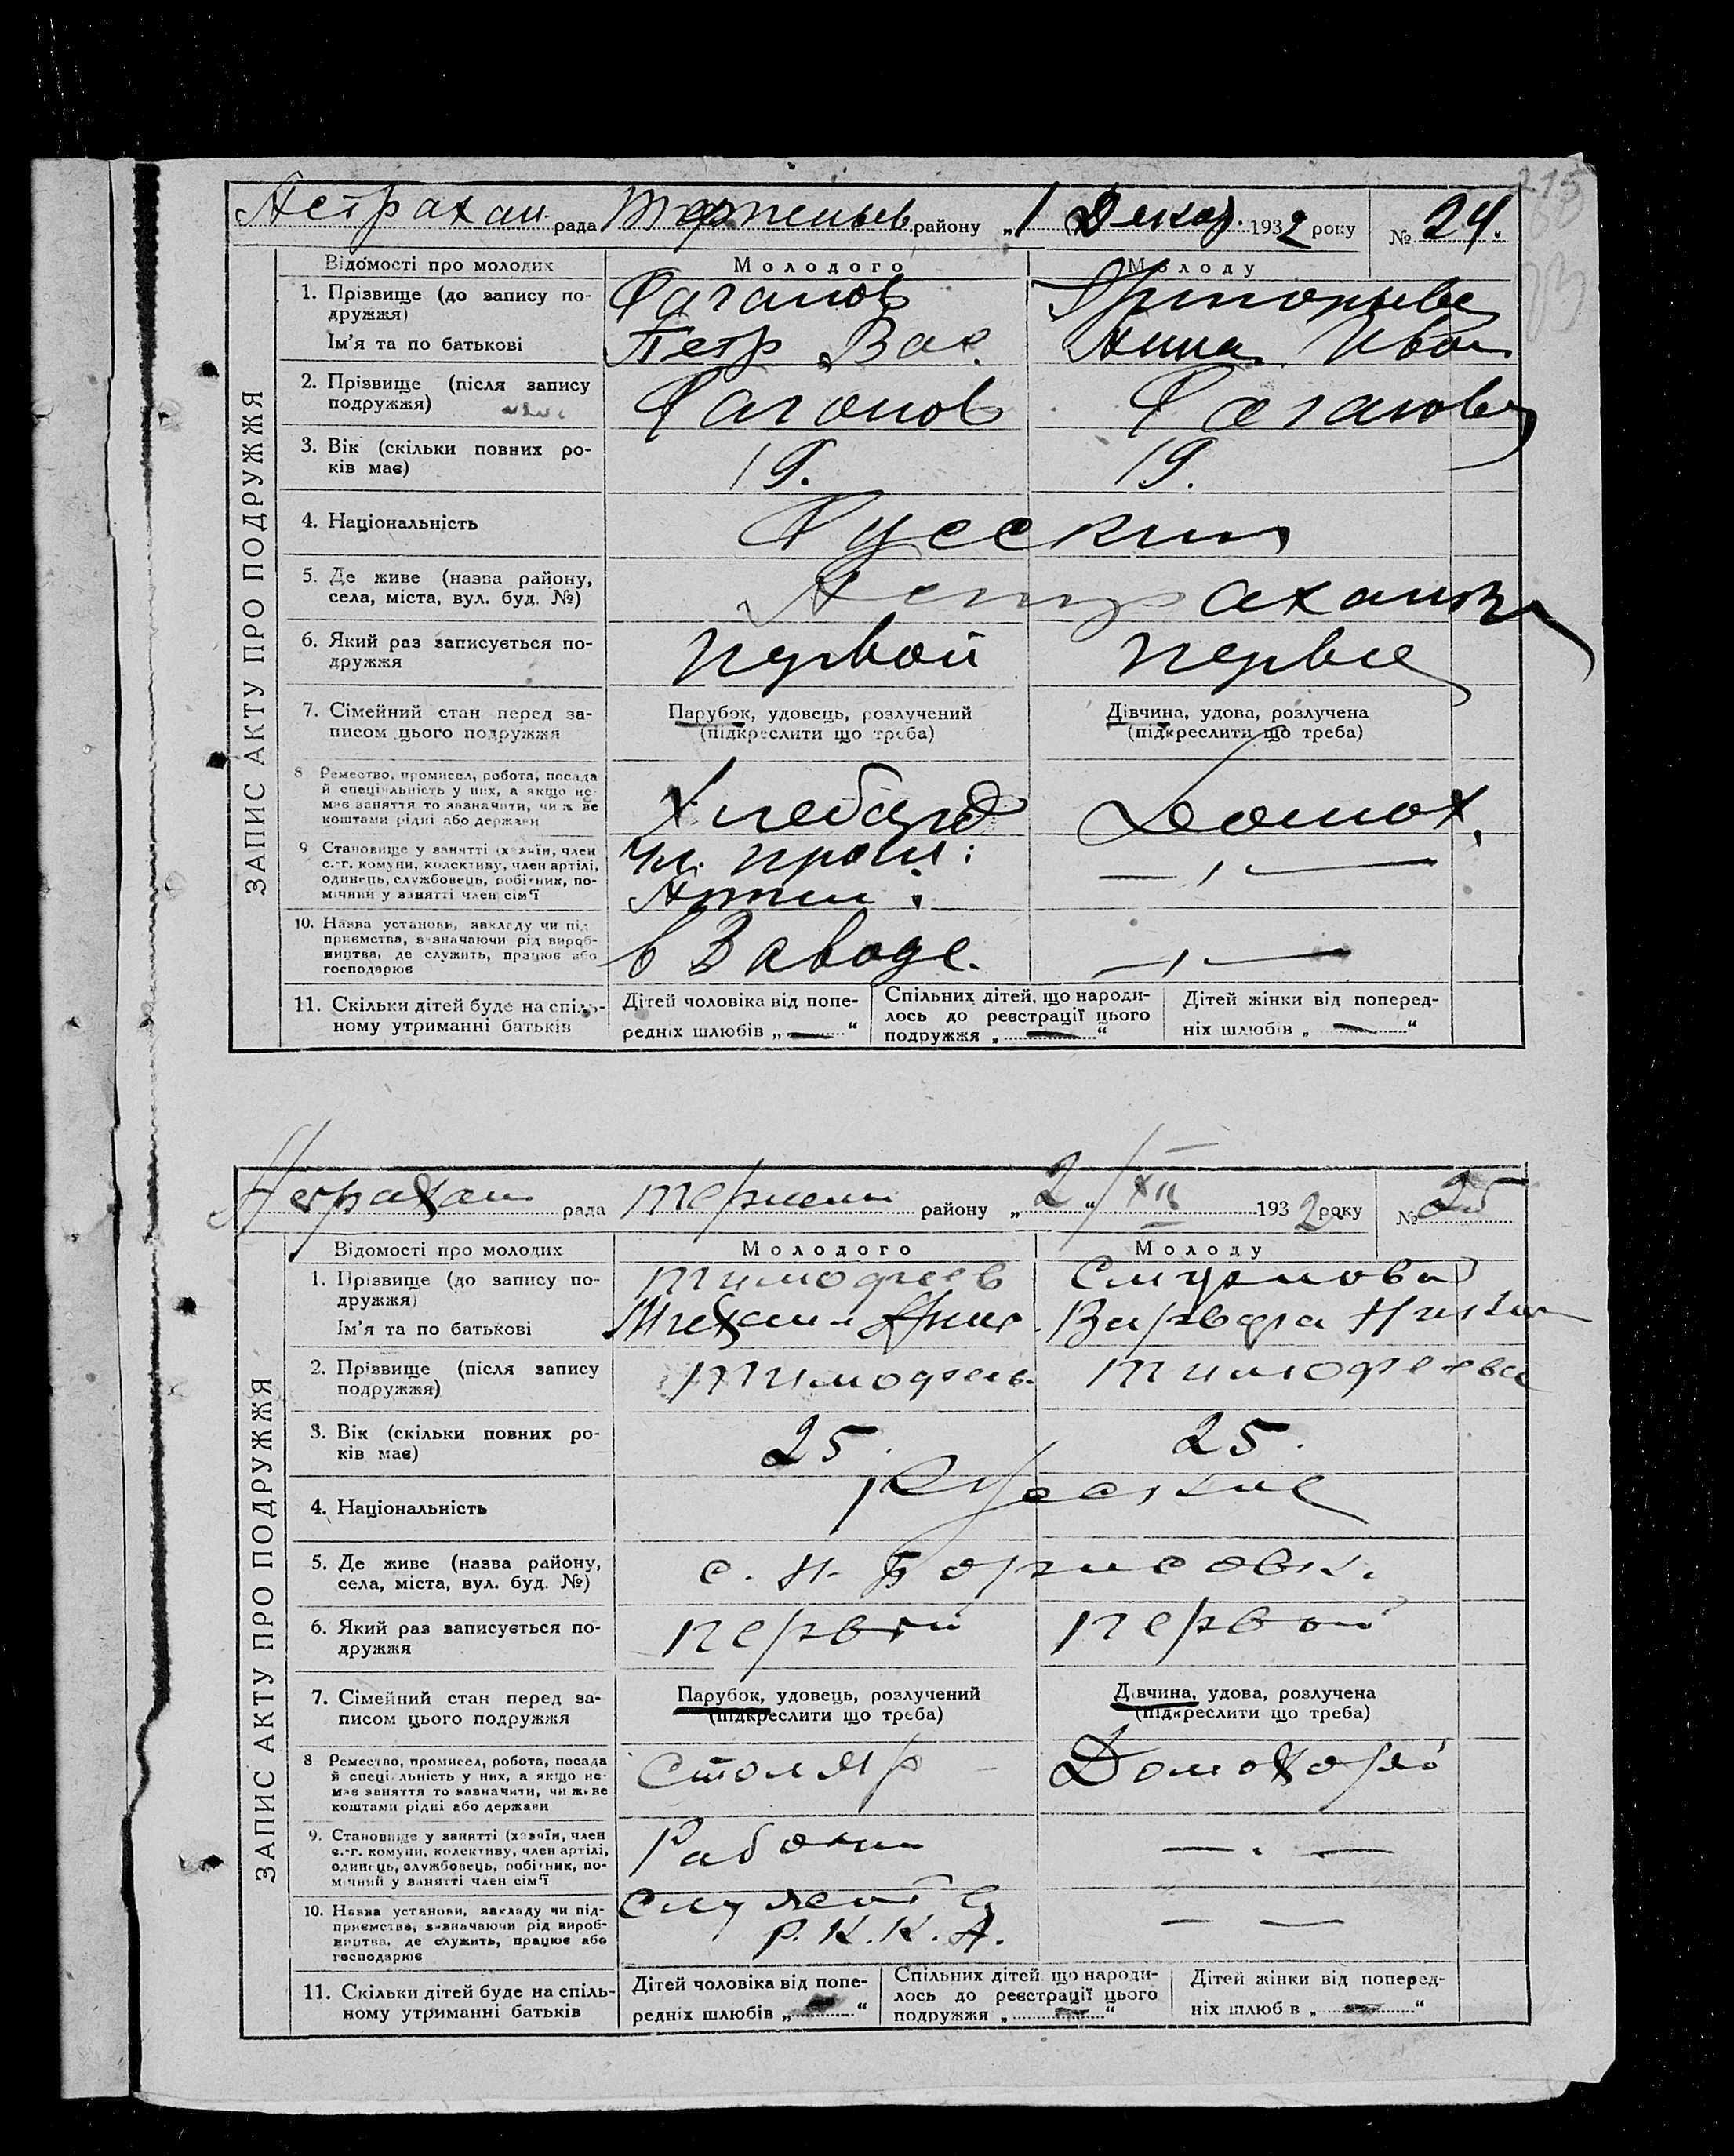 Астрахан рада Терпеньев району „1 Декаб. 1932 року № 24.
ЗАПИС АКТУ ПРО ПОДРУЖЖЯ
Відомості про молодих Молодого Молоду
1. Прізвище (до запису по-
дружжя)
Ім'я та по батькові Петр Вас. Анна Иван
2. Прізвище (після запису
подружжя)
3. Вік (скільки повних ро-
ків має) 19. 19.
4. Національність Русския
5. Де живе (назва району,
села, міста, вул. буд. №) Астраханка
6. Який раз записується по-
дружжя первой первая
7. Сімейний стан перед за-
писом цього подружжя
Парубок, удовець, розлучений
(підкреслити що треба)
Дівчина, удова, розлучена
(підкреслити що треба)
8 Ремество, промисел, робота, посада
й спеціяльність у них, а якщо не-
має заняття то зазначити, чи ж ве
коштами рідні або держави
Домох.
9 Становище у занятті (хазяїн, член
с.-г. комуни, колективу, член артілі,
одинець, службовець, робітник, по-
мічний у занятті член сім'ї
чл. пром.
Артели.
10. Назва установи, закладу чи під-
приємства, зазначаючи рід вироб-
ництва, де служить, працює або
господарює
в Заводе.
11. Скільки дітей буде на спіль-
ному утриманні батьків
Дітей чоловіка від попе-
редніх шлюбів „—“
Спільних дітей, що народи-
лось до реєстрації цього
подружжя „—“
Дітей жінки від поперед-
ніх шлюбів „—“
Астрахан рада Терпени району „2“ XII 1932 року № 25
ЗАПИС АКТУ ПРО ПОДРУЖЖЯ
Відомості про молодих Молодого Молоду
1. Прізвище (до запису по-
дружжя) Тимофеев
Ім'я та по батькові Михаил Варвара
2. Прізвище (після запису
подружжя) Тимофеев Тимофеева
3. Вік (скільки повних ро-
ків має) 25. 25.
4. Національність Русские
5. Де живе (назва району,
села, міста, вул. буд. №) с. Н. Борисовк.
6. Який раз записується по-
дружжя первой первой
7. Сімейний стан перед за-
писом цього подружжя
Парубок, удовець, розлучений
(підкреслити що треба)
Дівчина, удова, розлучена
(підкреслити що треба)
8 Ремество, промисел, робота, посада
й спеціяльність у них, а якщо не-
має заняття то зазначити, чи живе
коштами рідні або держави
Столяр Домохозяй
9. Становище у занятті (хазяїн, член
с.-г. комуни, колективу, член артілі,
одинець, службовець, робітник, по-
мічний у занятті член сім'ї
Рабочий
10. Назва установи, закладу чи під-
приємства, зазначаючи рід вироб-
ництва, де служить, працює або
господарює
Служит в
Р.К.К.А.
11. Скільки дітей буде на спіль-
ному утриманні батьків
Дітей чоловіка від попе-
редніх шлюбів „—“
Спільних дітей що народи-
лось до реєстрації цього
подружжя „—“
Дітей жінки від поперед-
ніх шлюб в „—“